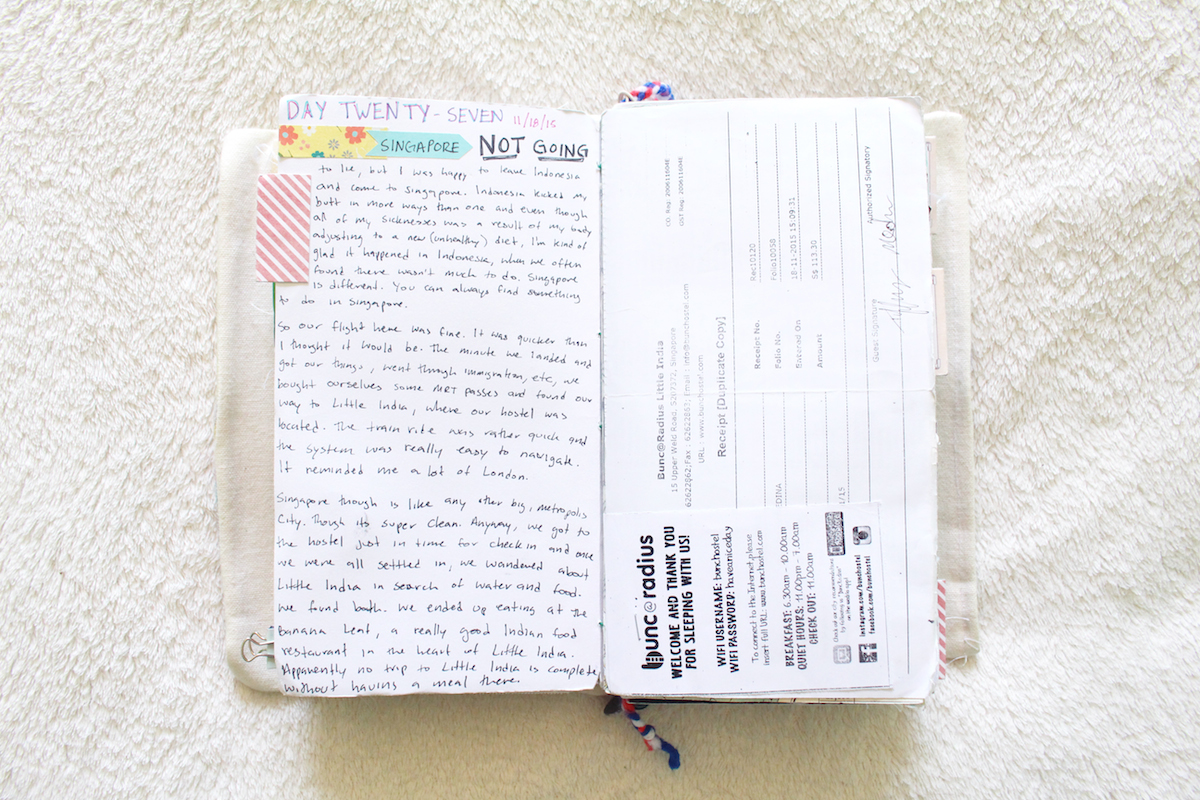 DAY TWENTY-SEVEN 11/18/15
SINGAPORE NOT GOING
to lie, but I was happy to leave Indonesia
and come to Singapore. Indonesia kicked my
butt in more ways than one and even though
all of my sicknesses was a result of my body
adjusting to a new (unhealthy) diet, I'm kind of
glad it happened in Indonesia, when we often
found there wasn't much to do. Singapore
is different. You can always find something
to do in Singapore.
So our flight here was fine. It was quicker than
I thought it would be. The minute we landed and
got our things, went through immigration, etc, we
bought ourselves some MRT passes and found our
way to Little India, where our hostel was
located. The train ride was rather quick and
the system was really easy to navigate.
It reminded me a lot of London.
Singapore though is like any other big, metropolis
City. Though its super clean. Anyway, we got to
the hostel just in time for check in and once
we were all settled in, we wandered about
Little India in search of water and food.
We found both. We ended up eating at the
Banana Leaf, a really good Indian food
restaurant in the heart of Little India.
Apparently no trip to Little India is complete
without having a meal there.
CO. Reg: 200611604E
GST Reg: 200611604E
Bunc@Radius Little India
15 Upper Weld Road, S207372, Singapore
62622862;Fax : 62622863; Email : info@bunchostel.com
URL : www.bunchostel.com
Receipt [Duplicate Copy]
Receipt No. Rec10120
Folio No. Folio10058
Entered On 18-11-2015 15:09:31
Amount S$ 113.30
EDINA
1/15
Guest Signature
Authorized Signatory
bunc@radius
WELCOME AND THANK YOU
FOR SLEEPING WITH US!
WIFI USERNAME: bunchostel
WIFI PASSWORD: haveaniceday
To connect to the Internet,please
insert full URL: www.bunchostel.com
BREAKFAST: 6.30am - 10.00am
QUIET HOURS: 11.00pm - 7.00am
CHECK OUT: 11.00am
Check out our city recommendations
by following
on the web app!
instagram.com/bunchostel
facebook.com/bunchostel